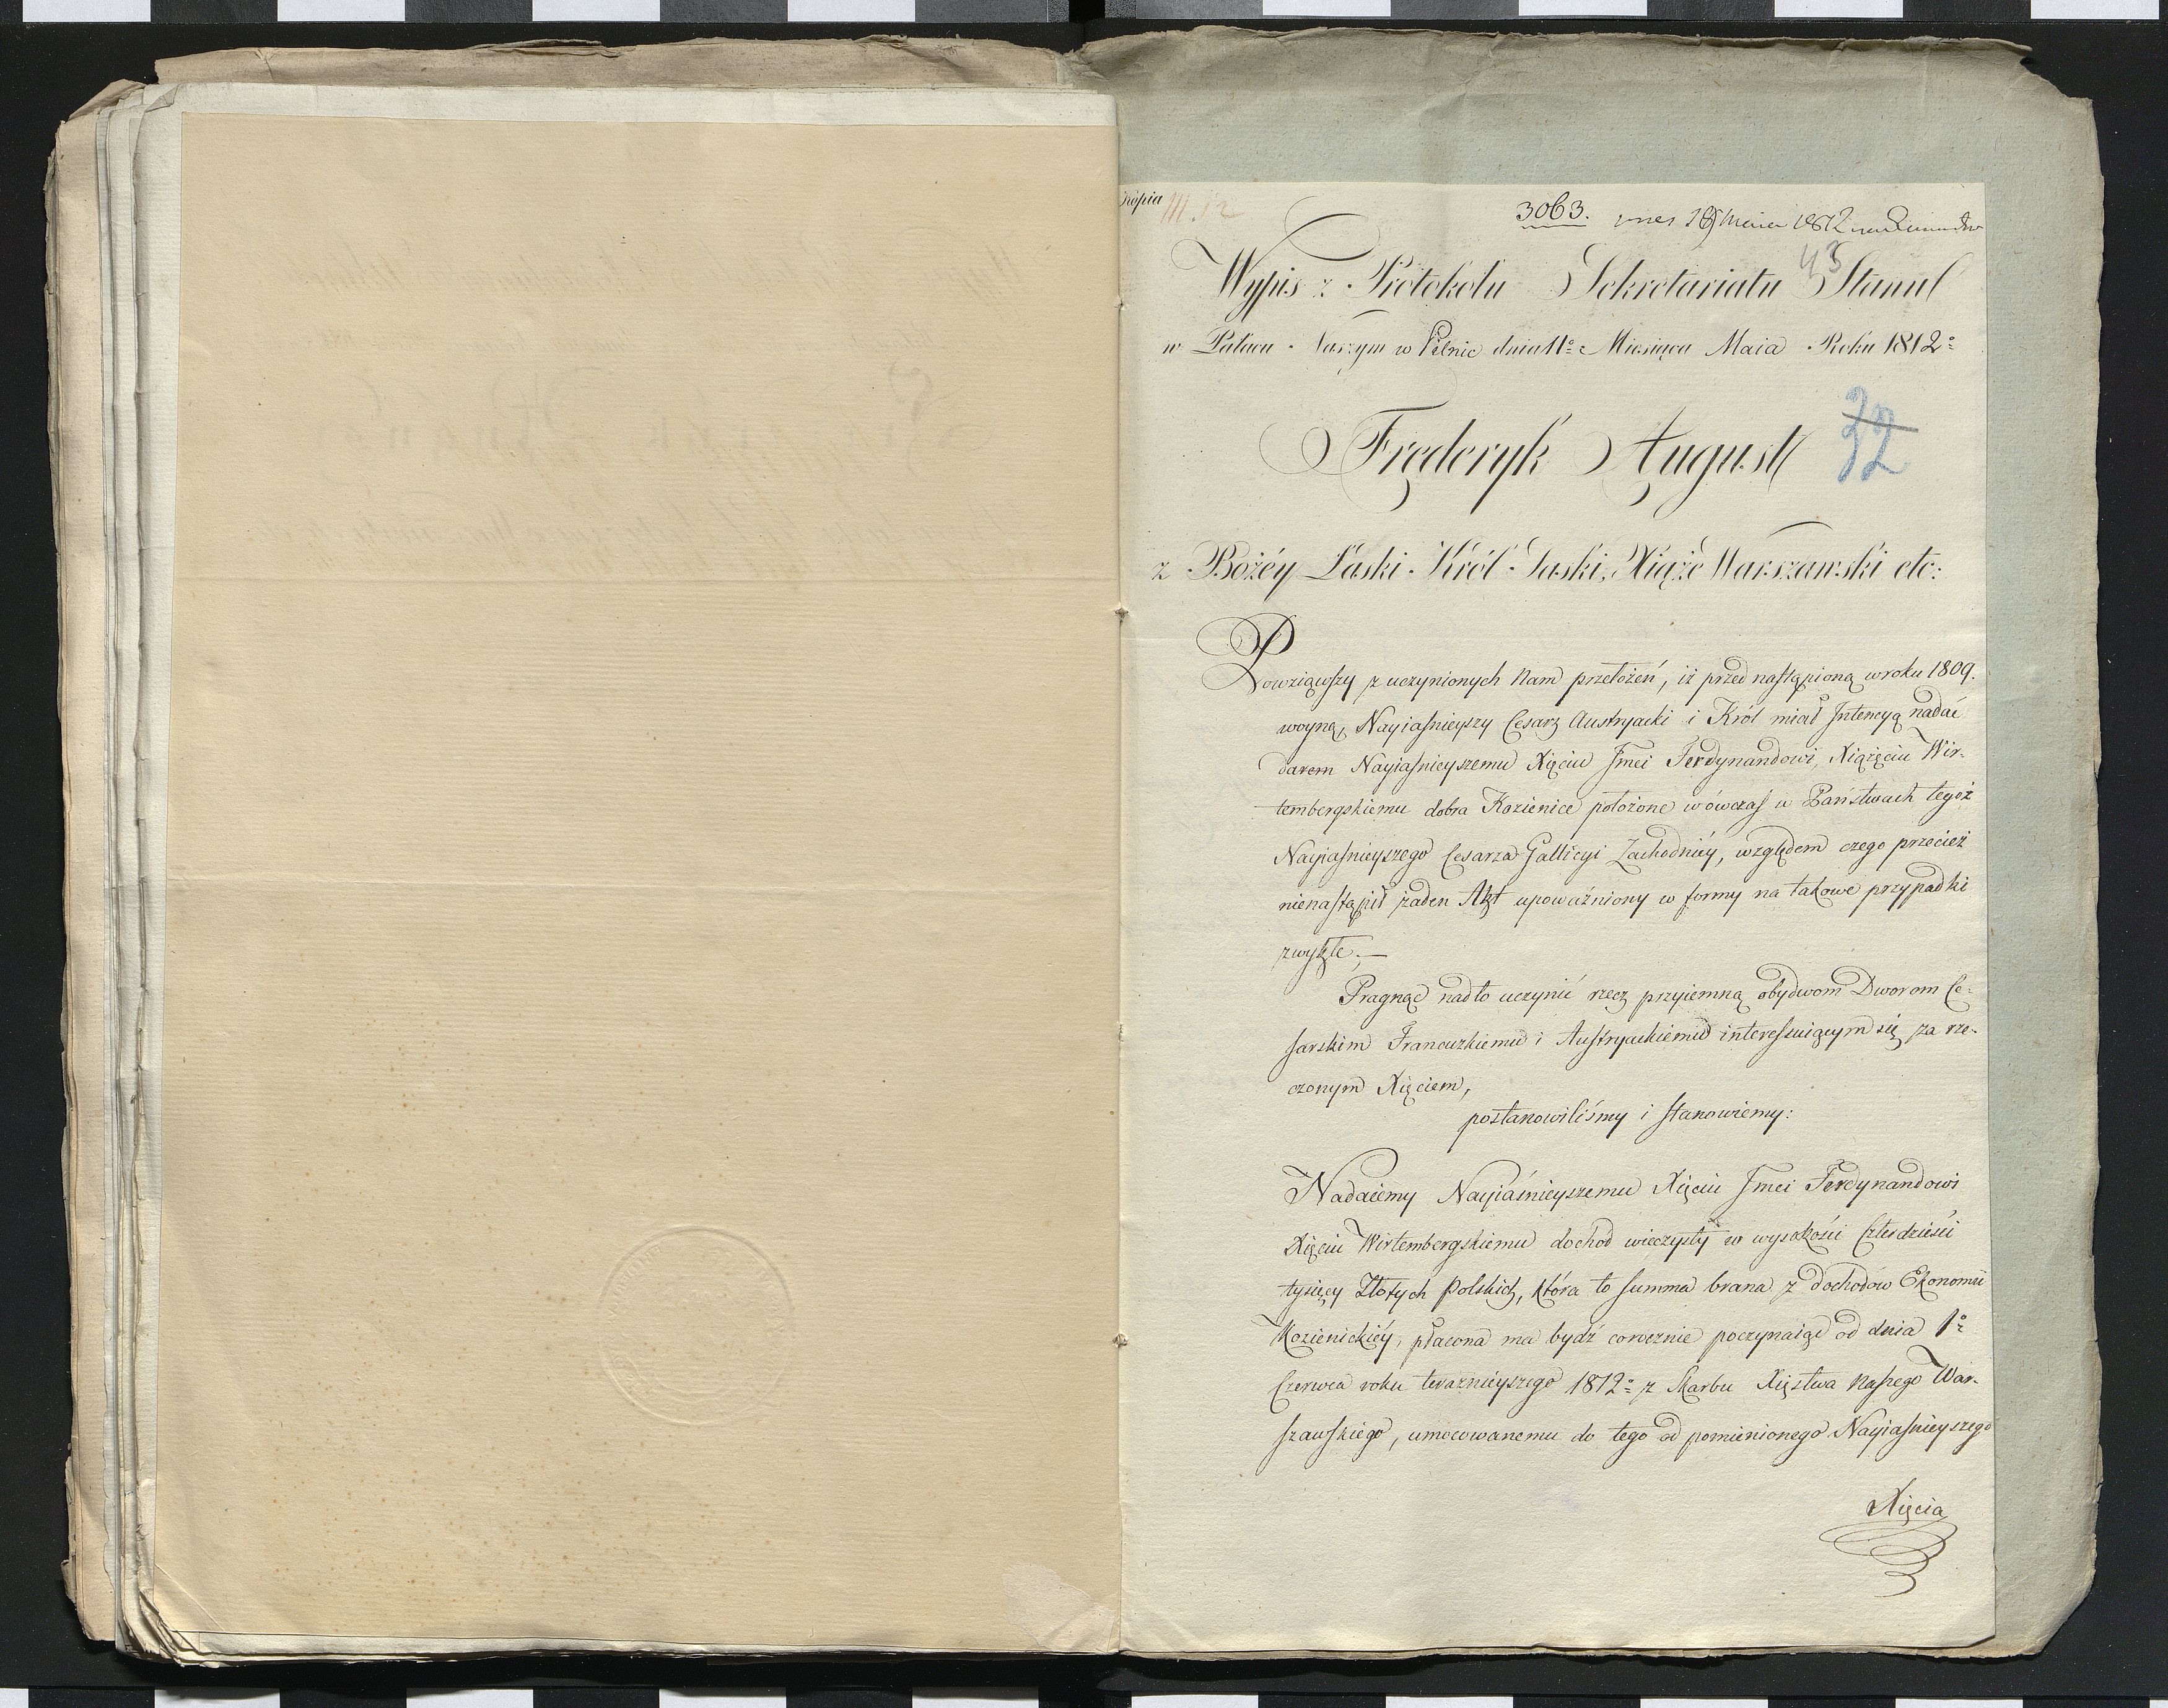 Kopia III. 12
3063.
43
Wypis z Protokołu Sekretariatu Stanu
w Pałacu Naszym w Pilnic dnia 11º Miesiąca Maia Roku 1812º
Fręderyk August
32
z Bożéy Łaski Król Saski, Xiąże Warszawski etc:
Powziąwszy z uczynionych Nam przełożeń, iż przed nastąpioną w roku 1809.
woyną, Nayiaśnieyszy Cesarz Austryacki i Król miał Intencyą nadać
darem Nayiaśnieyszemu Xięciu Jmci Ferdynandowi, Xiążęciu Wir-
tembergskiemu dobra Kozienice położone wówczas w Państwach tegoż
Nayiaśnieyszego Cesarza Gallicyi Zachodniéy, względem czego przecież
nienastąpił żaden Akt upoważniony w formy na takowe przypadki
zwykłe;—
Pragnąc nadto uczynić rzecz przyiemną obydwom Dworom Ce-
sarskim Francuzkiemu i Austryackiemu interessuiącym się za rze-
czonym Xięciem,
postanowiliśmy i stanowiemy:
Nadaiemy Nayiaśnieyszemu Xięciu Jmci Ferdynandowi
Xięciu Wirtembergskiemu dochod wieczysty w wysokości Czterdzieści
tysięcy Złotych Polskich, która to summa brana z dochodów Ekonomii
Kozienickiéy, płacona ma bydź corocznie poczynaiąc od dnia 1º
Czerwca roku teraznieyszego 1812º z Skarbu Xięstwa Naszego War-
szawskiego, umocowanemu do tego od pomienionego Nayiaśnieyszego
Xięcia